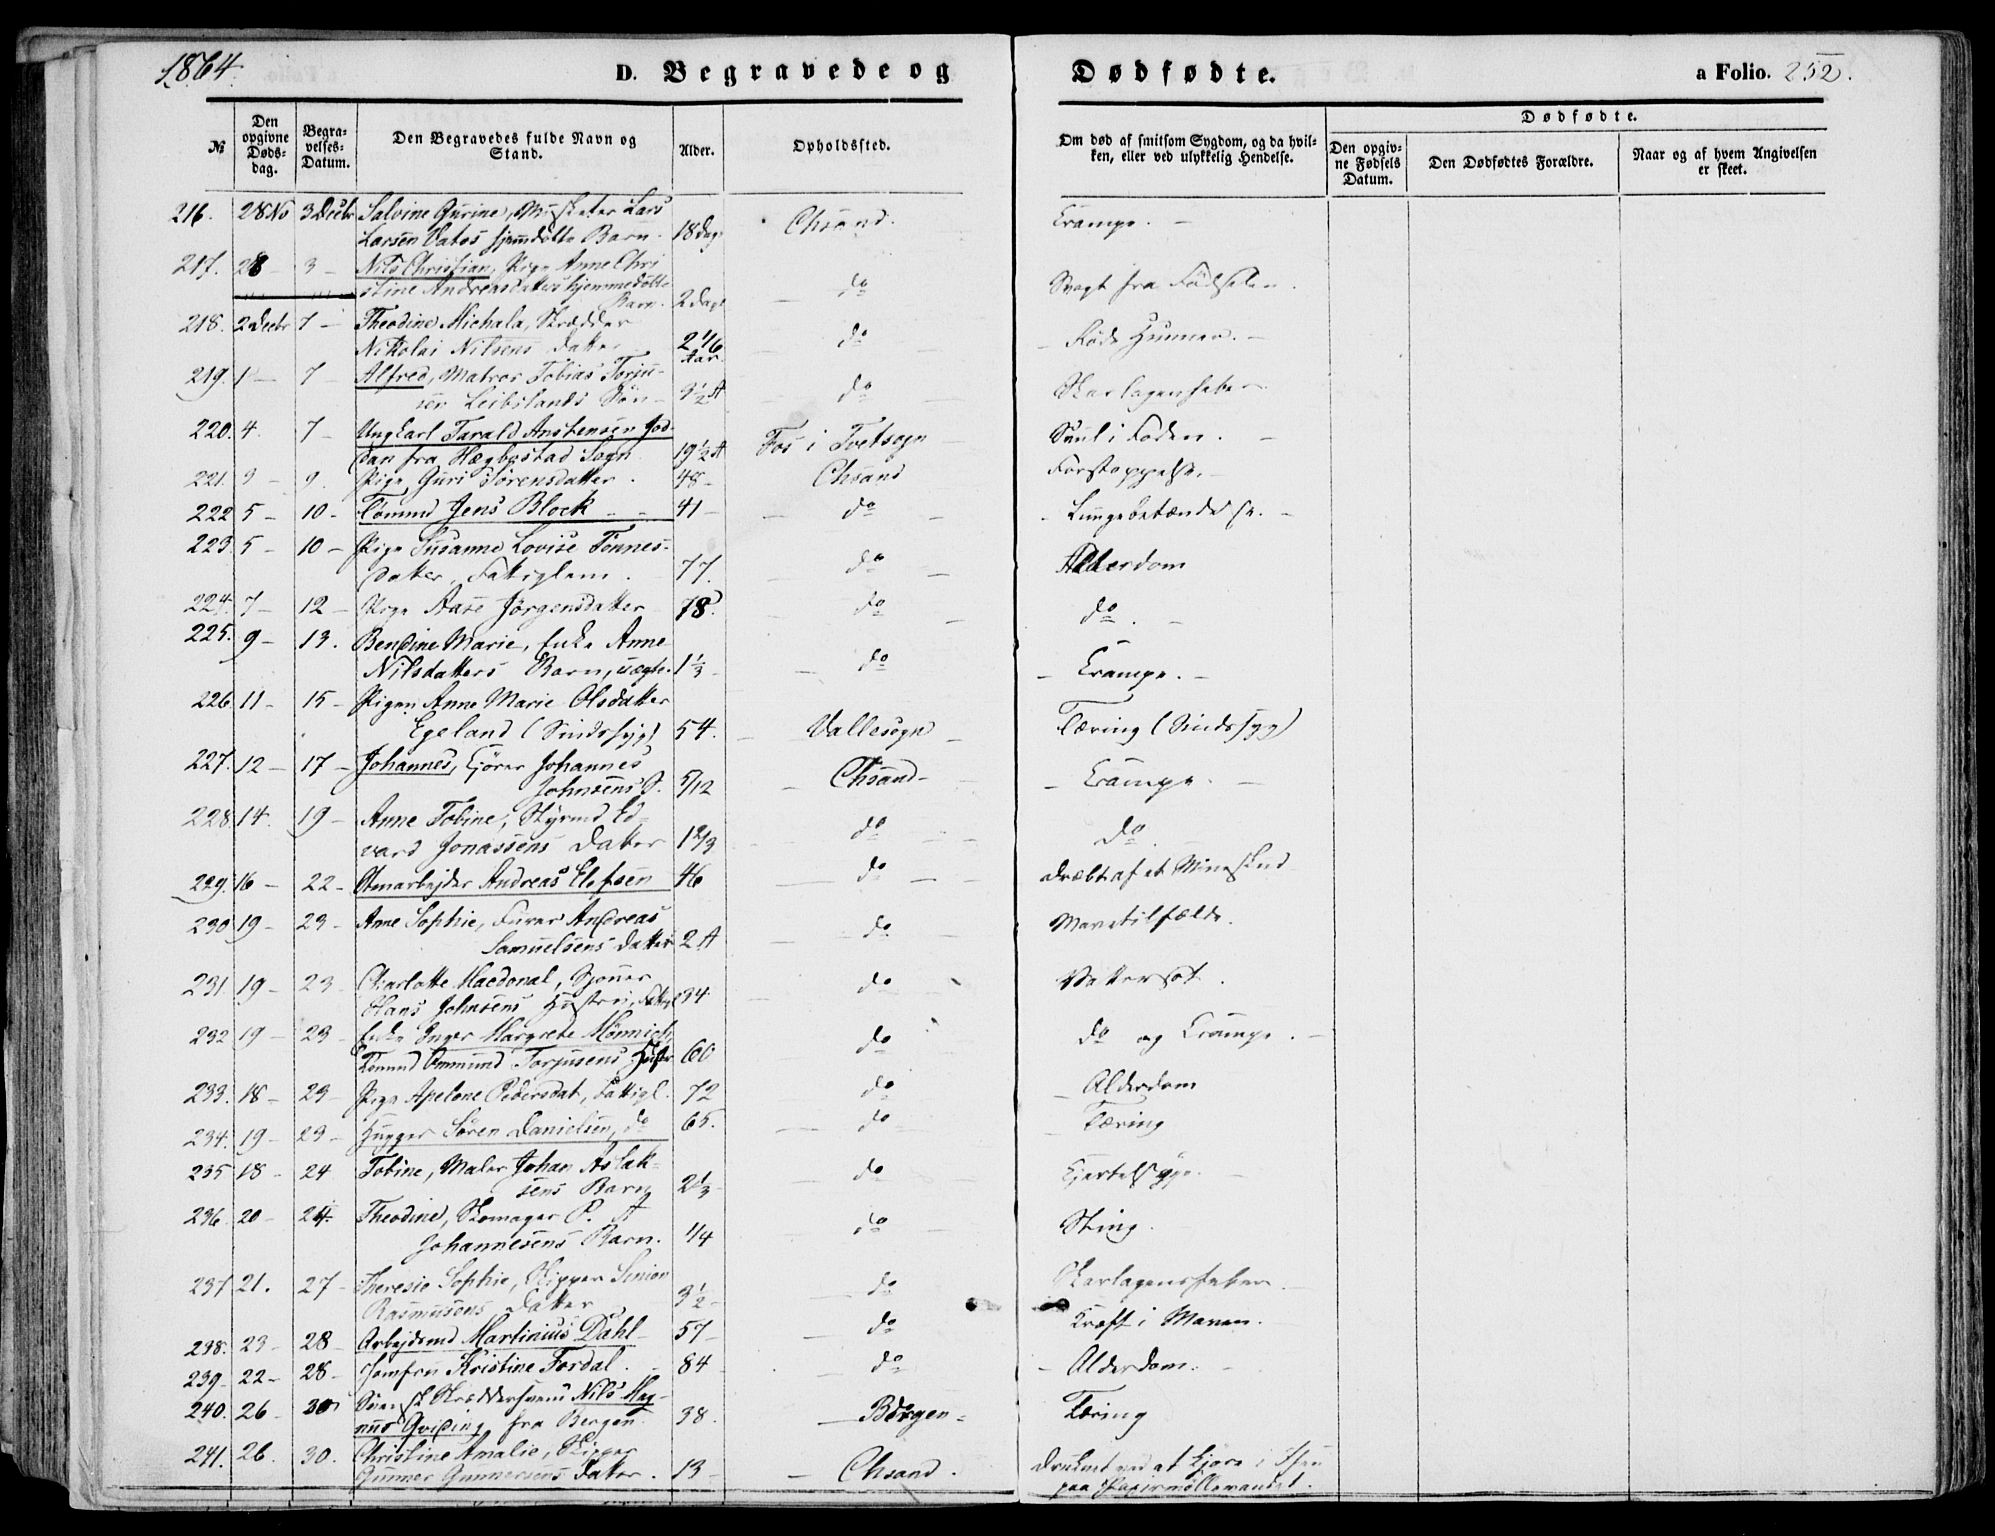 1864.
D. Begravede og Dødfødte.
a Folio. 252.
№
Den opgivne Døds-dag.
Begra-velses-Datum.
Den Begravedes fulde Navn og Stand.
Alder.
Opholdssted.
Om død af smitsom Sygdom, og da hvil-ken, eller ved ulykkelig Hendelse.
Dødfødte.
Den opgiv-ne Fødsels Datum.
Den Dødfødtes Forældre.
Naar og af hvem Angivelsen er skeet.
216. 28 No 3 Decbr Salvine Gurine, Musketer Lars
Larsen Vatos hjemdøbte Barn. 18 Dag. Chsand. Crampe.
217. 28 3 Nils Christian, Pige Anne Chri
stine Andreasdatters hjemmedøbte
Barn. 2 Dage do Svagt fra Fødselen.
218. 2 Decbr 7 Theodine Michala, Skrædder
Nikolai Nilsens Datter 2 1/6 Aar do Røde Hunner.
219. 1 7 Alfred, Matros Tobias Torju-
sen Leibslands Søn 3½ A do Skarlagensfeber
220. 4. 7 Ungkarl Tarald Anstensen
fra Hægbostad Sogn 19½ A Fos i Tvetsogn i Foden.
221. 3 9. Pige Guri Sørensdatter. 48 Chsand Forstoppelse.
222 5 10 Tømmd Jens Block 41 do Lungebetændelse.
223. 5 10 Pige Susanne Lovise Tønnes-
datter, Fattiglem. 77. do Alderdom
224. 7 12 Pige Aase Jørgensdatter 78. do do.
225. 9 13. Bendine Marie, Enke Anne
Nilsdatters Barn, uægte. 1⅓ do Crampe.
226. 11 15 Pigen Anne Marie Olsdatter
Egeland (Sindssyg) 54. Vallesogn Tæring (Sindssyg)
227. 12 17 Johannes, Kjører Johannes
Johnsens S. 5/12 Chsand Crampe.
228. 14. 19 Anne Tobine, Styrmd Ed-
vard Jonassens Datter 1 2/3 do do.
229. 16 22 Stenarbejder Andreas Elefsen 46 do dræbt af et Mineskud
230 19 23 Anne Sophie, Furer Andreas
Samuelsens Datter 2 A do Mavetilfælde.
231 19 23 Charlotte Macdonal,
Hans Johnsens Hustru, Fattigl 34 do Vattersot.
232 19 23 Enke Inger Margrete Mönnich,
Tømmd Ommund Torjusens Hustr 60 do do og Crampe.
233. 18 23 Pige Apelone Pedersdat, Fattigl. 72 do Alderdom
234. 19 23 Søren Danielsen, do 65. do Tæring
235 18 24 Tobine, Maler Johan Aslak-
sens Barn 2⅓ do Kjertelsyge.
236. 20 24. Theodine, Skomager P. A
Johannesens Barn. 1/4 do Sting.
237 21. 27 Theresie Sophie, Skipper Simon
Rasmusens Datter 3½ do Skarlagensfeber
238. 23 28 Arbejdsmd Martinius Dahl 57 do Kræft i Maven.
239. 22 28 Jomfru Kristine Fordal. 84 do Alderdom.
240. 26 30 Skræddersvend Nils Mag-
nus Qviding fra Bergen 38. Bergen Tæring
241. 26. 30. Christine Amalie, Skipper
Gunner Gunnersens Datter. 13 Chsand. druknet ved at kjøre i Isen
paa Papirmøllevandet.